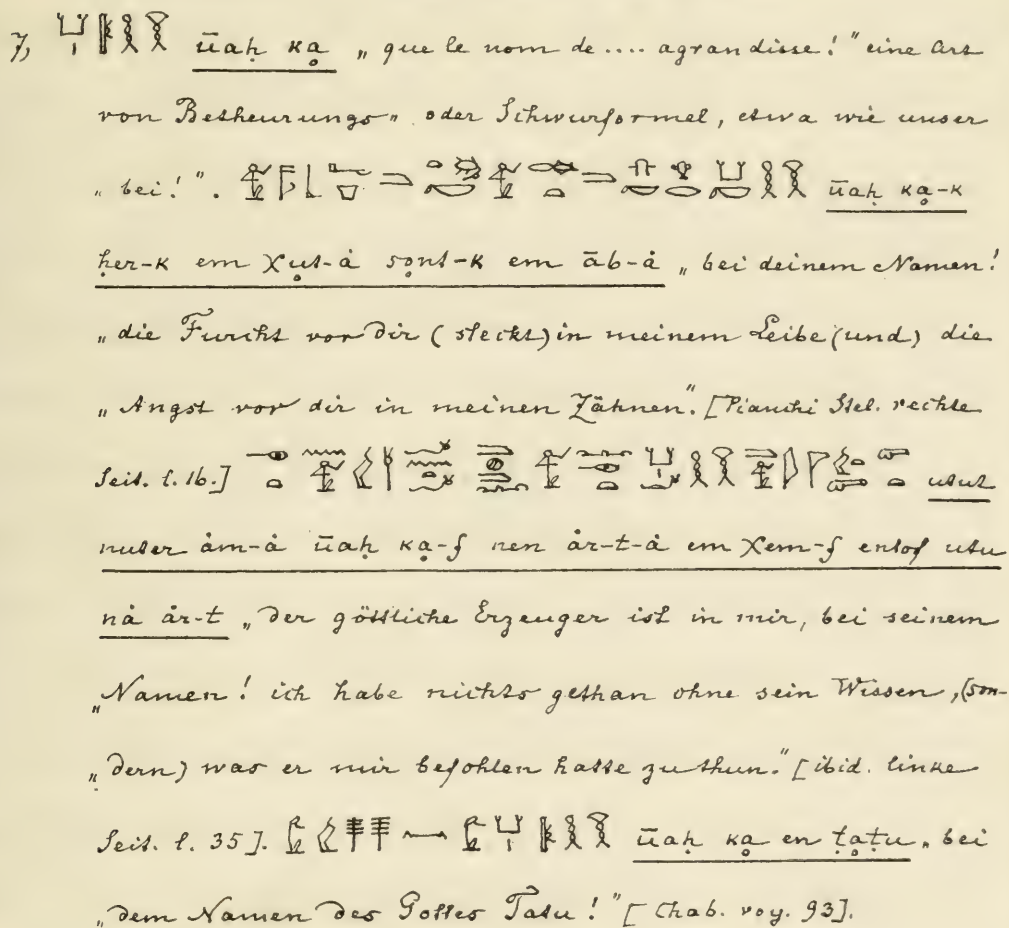 7, ūaḥ ḳa̱ „que le nom de .... agrandisse!" eine Art
von Betheurungs- oder Schwurformel, etwa wie unser
„bei!". ūaḥ ḳa̱-k
ḥer-k em χut-ȧ sont-k em āb-ȧ „bei deinem Namen!
„die Furcht vor dir (steckt) in meinem Leibe (und) die
„Angst vor dir in meinen Zähnen." [Pianchi Stel. rechte
Seit. l. 16.] utut
nuter ȧm-ȧ ūaḥ ḳa̱-f nen ȧr-t-ȧ em χem-f entof utu
nȧ ȧr-t „der göttliche Erzeuger ist in mir, bei seinem
„Namen! ich habe nichts gethan ohne sein Wissen, (son-
„dern) was er mir befohlen hatte zu thun." [ibid. linke
Seit. l. 35]. ūaḥ ḳa̱ en ṭaṭu „bei
„dem Namen des Gottes Tatu!" [Chab. voy. 93].